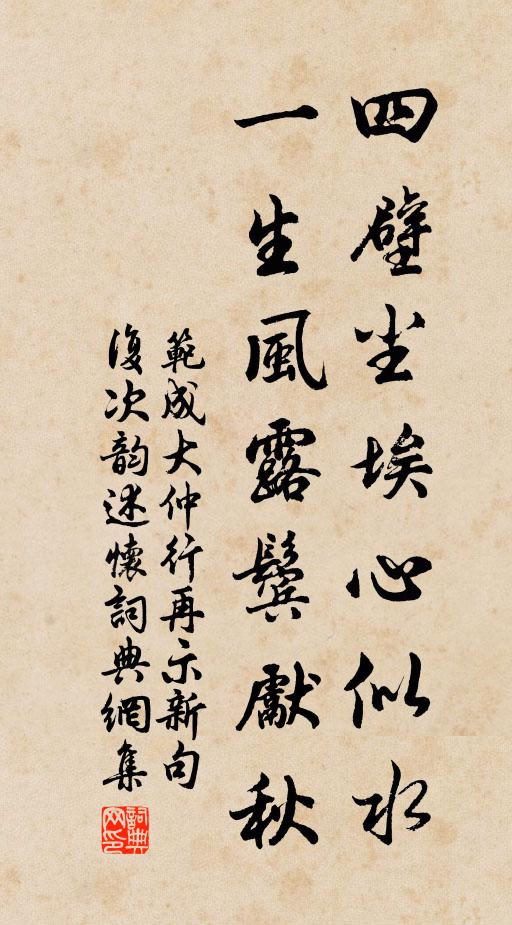 四壁尘埃心似水
一生風露鬢獻秋
範成大仲行再示新句
復次韵述懷詞典網集
詞典网印